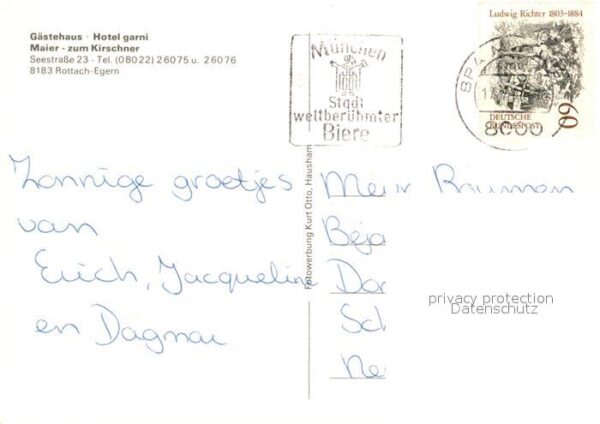 Gästehaus · Hotel garni
Maier - zum Kirschner
Seestraße 23 - Tel. (08022) 26075 u. 26076
8183 Rottach-Egern
München
Stadt
weltberühmter
Biere
Ludwig Richter 1803-1884
DEUTSCHE
BUNDESPOST
60
8000
Zonnige groetjes
van
Erich, Jacqueline
en Dagmar
Fotowerbung Kurt Otto, Hausham
Beja
Do
Sc
Ne
privacy protection
Datenschutz